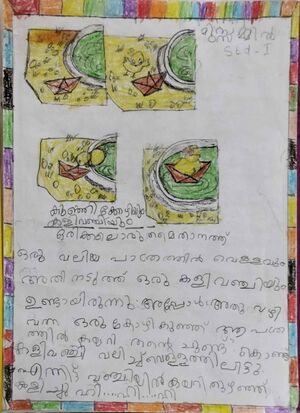 Std - I
കുഞ്ഞിക്കോഴിയും
കളിവഞ്ചിയും
ഒരിക്കലൊരു മൈതാനത്ത്
ഒരു വലിയ പാത്രത്തിൽ വെള്ളവും
അതിനടുത്ത് ഒരു കളിവഞ്ചിയും
ഉണ്ടായിരുന്നു. അപ്പോൾ അതു വഴി
വന്ന ഒരു കോഴികുഞ്ഞ് ആ പാത്ര
ത്തിൽ കയറി തന്റെ ചുണ്ട് കൊണ്ടു
കളിവഞ്ചി വലിച്ചുവെള്ളത്തിലിട്ടു.
എന്നിട്ട് വഞ്ചിയിൽ കയറി തുഴഞ്ഞ്
കളിച്ചു ഹീ...ഹീ...ഹീ